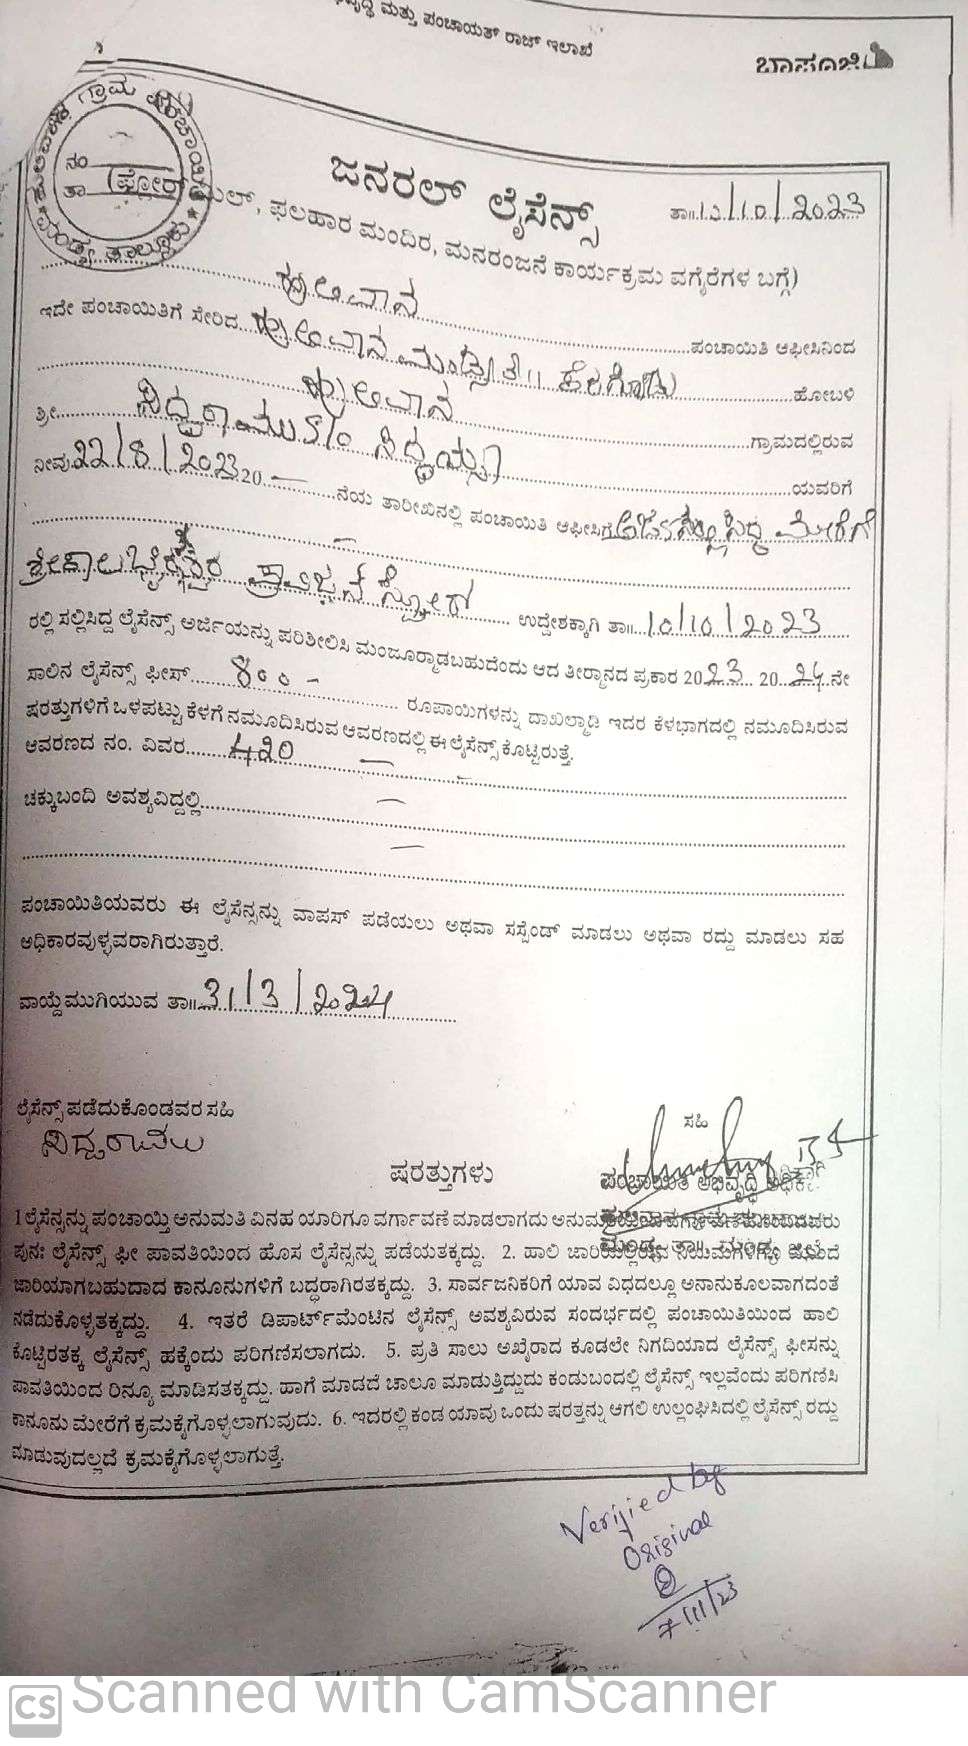 ಮತ್ತು ಪಂಚಾಯತ್ ರಾಜ್ ಇಲಾಖೆ
ಗ್ರಾಮ
ಮಂಡ್ಯ ತಾಲ್ಲೂಕು
ನಂ
ತಾ
ಜನರಲ್ ಲೈಸೆನ್ಸ್
ತಾ॥ 12/10/2023
(ಫ್ಲೋರ್ ಮಿಲ್, ಫಲಹಾರ ಮಂದಿರ, ಮನರಂಜನೆ ಕಾರ್ಯಕ್ರಮ ವಗೈರೆಗಳ ಬಗ್ಗೆ)
ಹುಲಿವಾನ ಪಂಚಾಯಿತಿ ಆಫೀಸಿನಿಂದ
ಇದೇ ಪಂಚಾಯಿತಿಗೆ ಸೇರಿದ ಹುಲಿವಾನ ಮಂಡ್ಯ ತಾ॥ ಕೆರಗೋಡು ಹೋಬಳಿ
ಹುಲಿವಾನ ಗ್ರಾಮದಲ್ಲಿರುವ
ಶ್ರೀ ಸಿದ್ದರಾಮು S/o ಸಿದ್ದಯ್ಯ ಯವರಿಗೆ
ನೀವು 22/8/2023 20 — ನೆಯ ತಾರೀಖಿನಲ್ಲಿ ಪಂಚಾಯಿತಿ ಆಫೀಸಿಗೆ ಮೇರೆಗೆ
—
ಶ್ರೀ ಕಾಲಭೈರವೇಶ್ವರ ಪ್ರಾವಿಜನ್ ಸ್ಟೋರ್ ಉದ್ದೇಶಕ್ಕಾಗಿ ತಾ॥ 10/10/2023
ರಲ್ಲಿ ಸಲ್ಲಿಸಿದ್ದ ಲೈಸೆನ್ಸ್ ಅರ್ಜಿಯನ್ನು ಪರಿಶೀಲಿಸಿ ಮಂಜೂರ‍್ಮಾಡಬಹುದೆಂದು ಆದ ತೀರ‍್ಮಾನದ ಪ್ರಕಾರ 2023 20 24 ನೇ
ಸಾಲಿನ ಲೈಸೆನ್ಸ್ ಫೀಸ್ 800 - ರೂಪಾಯಿಗಳನ್ನು ದಾಖಲ್ಮಾಡಿ ಇದರ ಕೆಳಭಾಗದಲ್ಲಿ ನಮೂದಿಸಿರುವ
ಷರತ್ತುಗಳಿಗೆ ಒಳಪಟ್ಟು ಕೆಳಗೆ ನಮೂದಿಸಿರುವ ಆವರಣದಲ್ಲಿ ಈ ಲೈಸೆನ್ಸ್ ಕೊಟ್ಟಿರುತ್ತೆ.
ಆವರಣದ ನಂ. ವಿವರ 420 —
ಚಕ್ಕುಬಂದಿ ಅವಶ್ಯವಿದ್ದಲ್ಲಿ —
—
ಪಂಚಾಯಿತಿಯವರು ಈ ಲೈಸೆನ್ಸನ್ನು ವಾಪಸ್ ಪಡೆಯಲು ಅಥವಾ ಸಸ್ಪೆಂಡ್ ಮಾಡಲು ಅಥವಾ ರದ್ದು ಮಾಡಲು ಸಹ
ಅಧಿಕಾರವುಳ್ಳವರಾಗಿರುತ್ತಾರೆ.
ವಾಯ್ದೆ ಮುಗಿಯುವ ತಾ॥ 31/3/2024
ಲೈಸೆನ್ಸ್ ಪಡೆದುಕೊಂಡವರ ಸಹಿ
ಸಿದ್ದರಾಮು
ಸಹಿ
ಪಂಚಾಯಿತಿ ಅಭಿವೃದ್ಧಿ
ಷರತ್ತುಗಳು
1 ಲೈಸೆನ್ಸನ್ನು ಪಂಚಾಯ್ತಿ ಅನುಮತಿ ವಿನಹ ಯಾರಿಗೂ ವರ್ಗಾವಣೆ ಮಾಡಲಾಗದು
ಪುನಃ ಲೈಸೆನ್ಸ್ ಫೀ ಪಾವತಿಯಿಂದ ಹೊಸ ಲೈಸೆನ್ಸನ್ನು ಪಡೆಯತಕ್ಕದ್ದು. 2. ಹಾಲಿ ಜಾರಿಯಲ್ಲಿರುವ ನಿಯಮಗಳಿಗೂ ಮುಂದೆ
ಜಾರಿಯಾಗಬಹುದಾದ ಕಾನೂನುಗಳಿಗೆ ಬದ್ಧರಾಗಿರತಕ್ಕದ್ದು. 3. ಸಾರ್ವಜನಿಕರಿಗೆ ಯಾವ ವಿಧದಲ್ಲೂ ಅನಾನುಕೂಲವಾಗದಂತೆ
ನಡೆದುಕೊಳ್ಳತಕ್ಕದ್ದು. 4. ಇತರೆ ಡಿಪಾರ್ಟ್‌ಮೆಂಟಿನ ಲೈಸೆನ್ಸ್ ಅವಶ್ಯವಿರುವ ಸಂದರ್ಭದಲ್ಲಿ ಪಂಚಾಯಿತಿಯಿಂದ ಹಾಲಿ
ಕೊಟ್ಟಿರತಕ್ಕ ಲೈಸೆನ್ಸ್ ಹಕ್ಕೆಂದು ಪರಿಗಣಿಸಲಾಗದು. 5. ಪ್ರತಿ ಸಾಲು ಅಖೈರಾದ ಕೂಡಲೇ ನಿಗದಿಯಾದ ಲೈಸೆನ್ಸ್ ಫೀಸನ್ನು
ಪಾವತಿಯಿಂದ ರಿನ್ಯೂ ಮಾಡಿಸತಕ್ಕದ್ದು. ಹಾಗೆ ಮಾಡದೆ ಚಾಲೂ ಮಾಡುತ್ತಿದ್ದುದು ಕಂಡುಬಂದಲ್ಲಿ ಲೈಸೆನ್ಸ್ ಇಲ್ಲವೆಂದು ಪರಿಗಣಿಸಿ
ಕಾನೂನು ಮೇರೆಗೆ ಕ್ರಮಕೈಗೊಳ್ಳಲಾಗುವುದು. 6. ಇದರಲ್ಲಿ ಕಂಡ ಯಾವು ಒಂದು ಷರತ್ತನ್ನು ಆಗಲಿ ಉಲ್ಲಂಘಿಸಿದಲ್ಲಿ ಲೈಸೆನ್ಸ್ ರದ್ದು
ಮಾಡುವುದಲ್ಲದೆ ಕ್ರಮಕೈಗೊಳ್ಳಲಾಗುತ್ತೆ.
Verified by
Original
7/11/23
CS Scanned with CamScanner